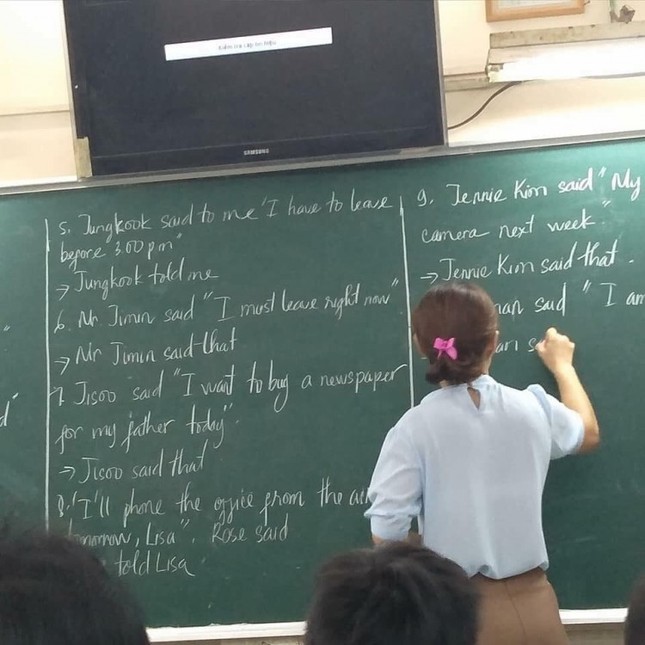 SAMSUNG
5. Jungkook said to me "I have to leave
before 3.00 pm"
→ Jungkook told me
6. Mr. Jimin said "I must leave right now"
→ Mr Jimin said that
7. Jisoo said "I want to buy a newspaper
for my father today".
→ Jisoo said that
8. "I'll phone the office from the
tomorrow, Lisa". Rose said
told Lisa
9. Jennie Kim said "My
camera next week"
→ Jennie Kim said that.
said "I am